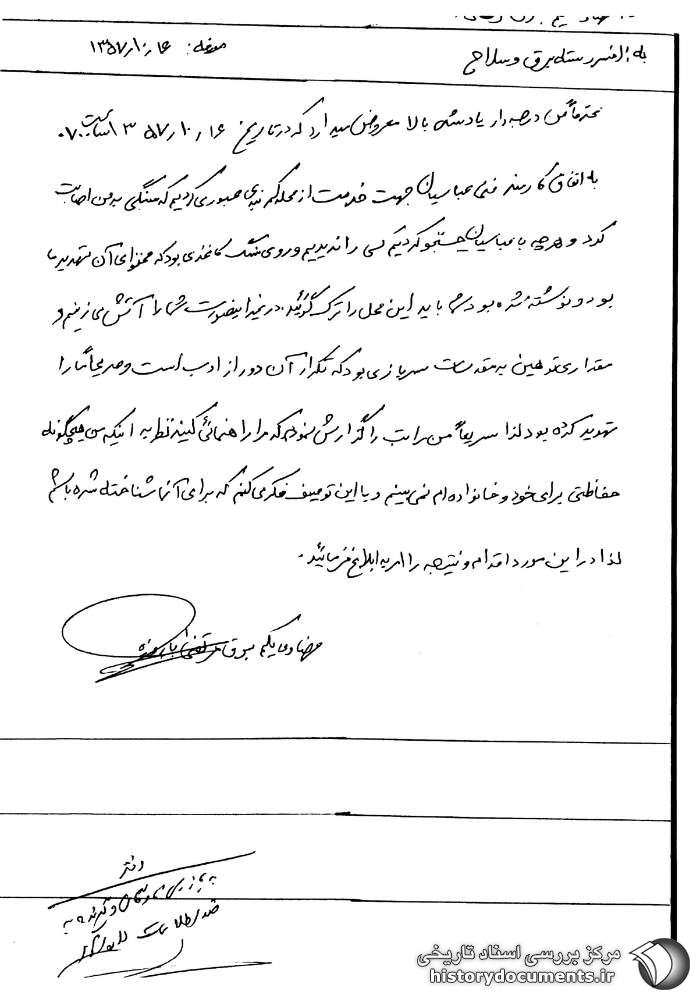 به: افسر رسته برق و سلاح
مورخه: ۱۶ر۱۰ر۱۳۵۷
محترماً من درجه‌دار یاد شده بالا معروض میدارد که در تاریخ ۱۶ر۱۰ر۵۷ ۱۳ ساعت ۰۷۰۰
به اتفاق کارمند فنی عباسیان جهت خدمت از محله عبور می‌کردیم که سنگی به من اصابت
کرد و هر چه با عباسیان جستجو کردیم کسی را ندیدیم و روی سنگ کاغذی بود که محتوای آن تهدید ما
بود و نوشته شده بود شما باید این محل را ترک گوئید. در غیر اینصورت شما را آتش می‌زنیم و
مقداری توهین به مقدسات سربازی بود که تکرار آن دور از ادب است و صریحاً ما را
تهدید کرده بود لذا سریعاً من مراتب را گزارش نمودم که مرا راهنمائی کنید نظر به اینکه من هیچگونه
حفاظتی برای خود و خانواده‌ام نمی‌بینم و با این توصیف فکر می‌کنم که برای آنها شناخته شده باشم
لذا در این مورد اقدام و نتیجه را امر به ابلاغ فرمائید.
همافر یکم برق مرتضی
دفتر
به
ضد اطلاعات
مرکز بررسی اسناد تاریخی
historydocuments.ir